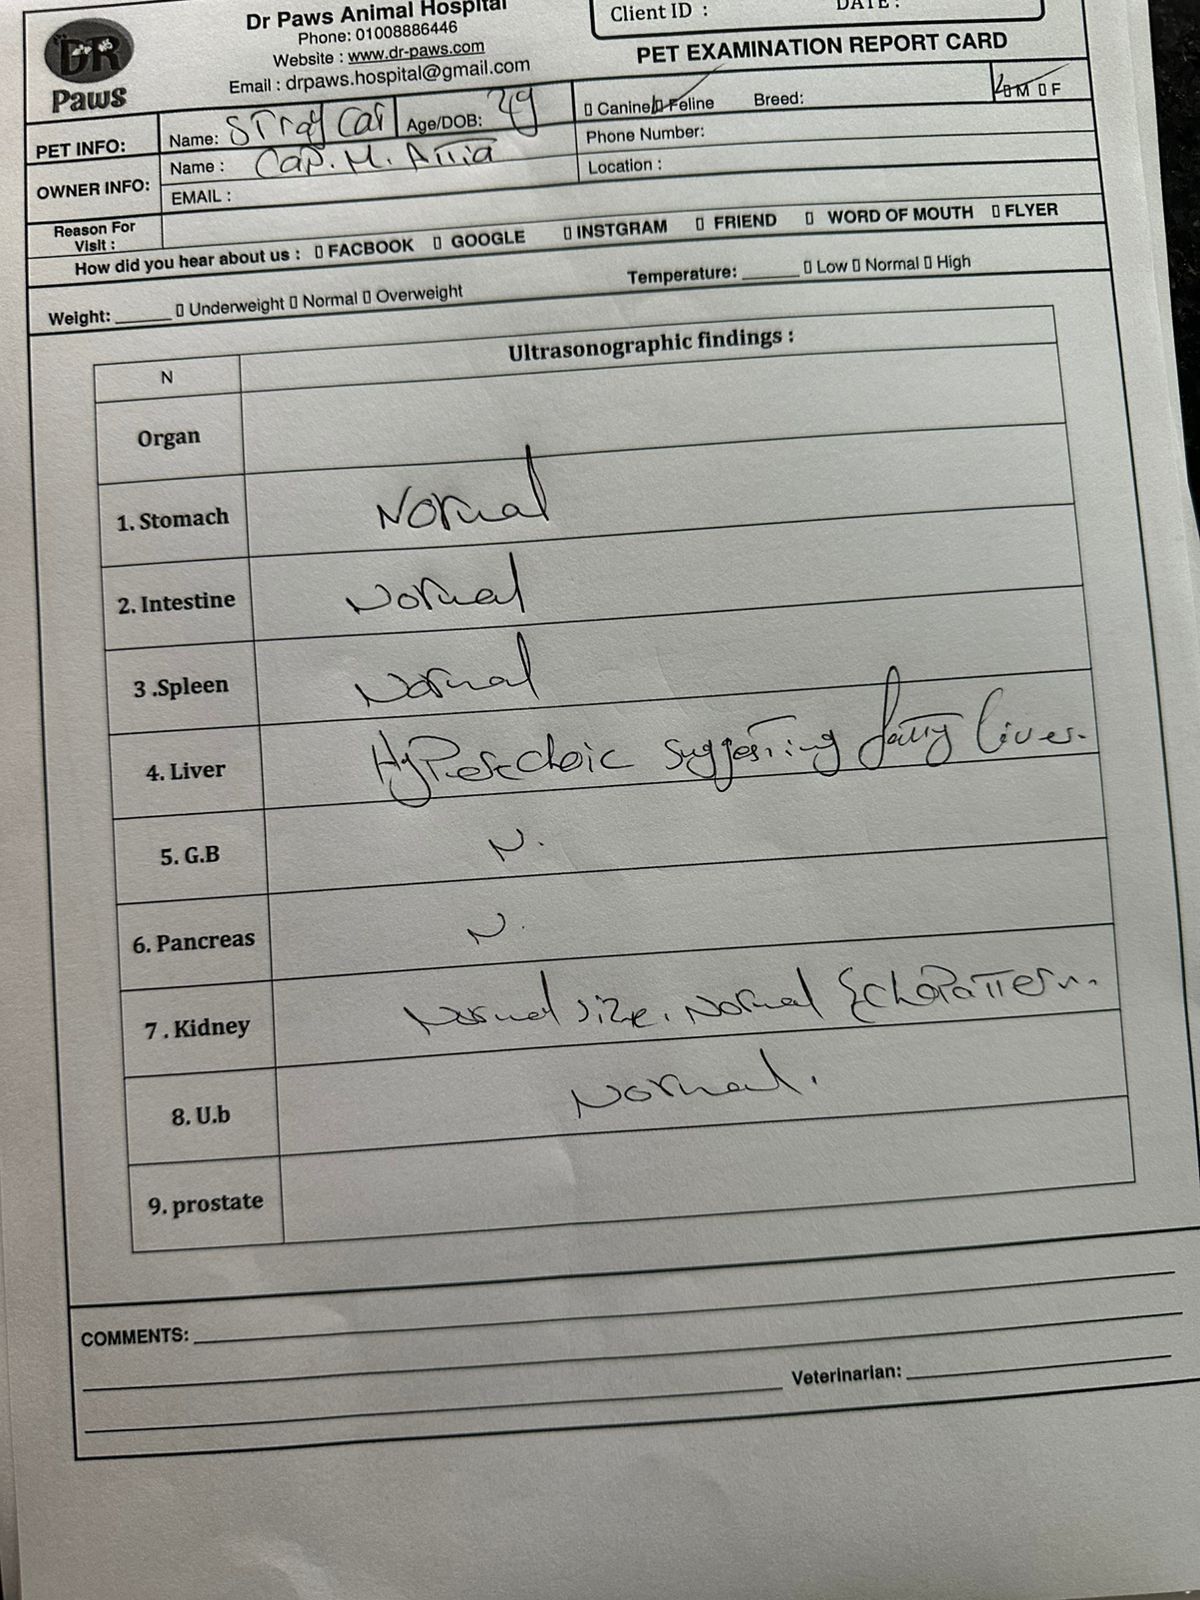 DR
Paws
Dr Paws Animal Hospital
Phone: 01008886446
Website : www.dr-paws.com
Email : drpaws.hospital@gmail.com
Client ID : DATE:
PET EXAMINATION REPORT CARD
PET INFO: Name: Stray Cat Age/DOB: 2y ▯ Canine ▯ Feline Breed: ▯ M ▯ F
OWNER INFO: Name : Cap. M. Attia Phone Number:
EMAIL : Location :
Reason For Visit :
How did you hear about us : ▯ FACBOOK ▯ GOOGLE ▯ INSTGRAM ▯ FRIEND ▯ WORD OF MOUTH ▯ FLYER
Weight: ______ ▯ Underweight ▯ Normal ▯ Overweight Temperature: ______ ▯ Low ▯ Normal ▯ High
N Ultrasonographic findings :
Organ
1. Stomach Normal
2. Intestine Normal
3 .Spleen Normal
4. Liver suggesting fatty liver.
5. G.B N.
6. Pancreas N.
7 . Kidney Normal size. Normal EchoPattern.
8. U.b Normal.
9. prostate
COMMENTS:
Veterinarian: